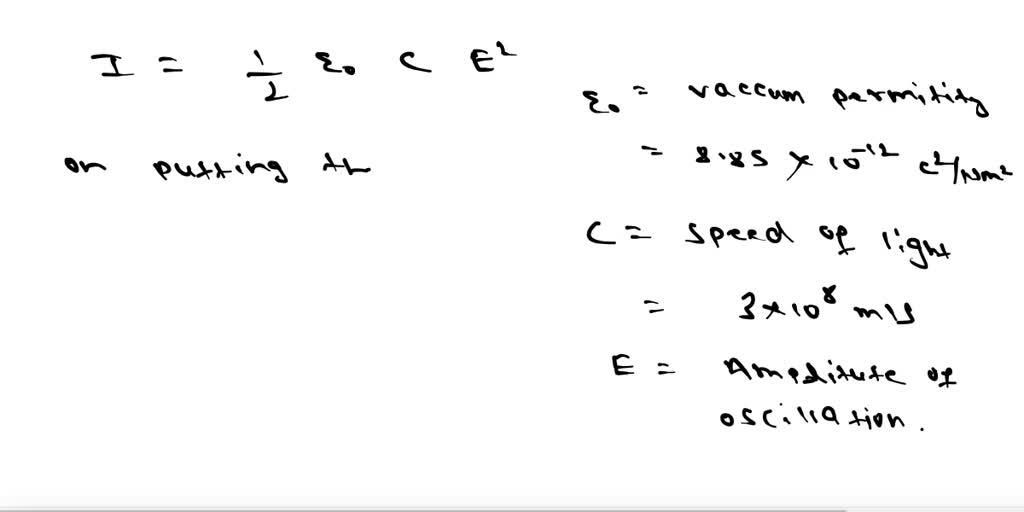 I = 1/2 ε₀ C E²
on putting th
ε₀ = vaccum permitity
= 8.85 × 10⁻¹² c²/Nm²
C = speed of light
= 3×10⁸ m/s
E = Amplitute of
oscillation.